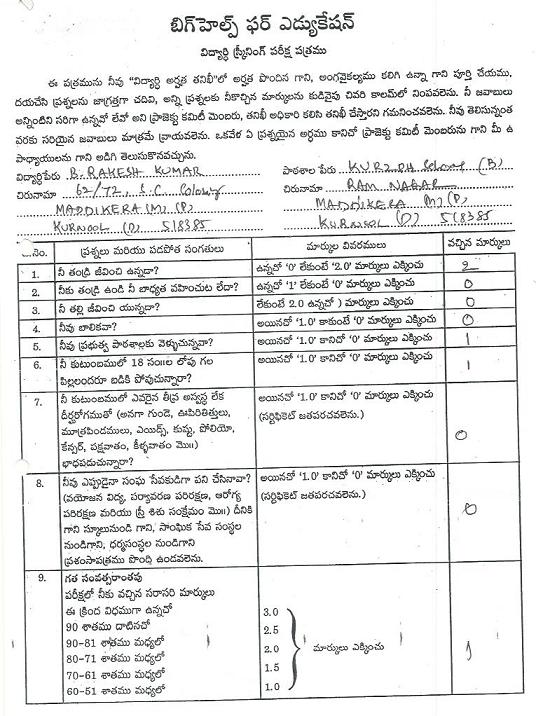 బిగ్‌హెల్ప్ ఫర్ ఎడ్యుకేషన్
విద్యార్థి స్క్రీనింగ్ పరీక్ష పత్రము
ఈ పత్రమును నీవు "విద్యార్థి అర్హత తనిఖీ"లో అర్హత పొందిన గాని, అంగవైకల్యము కలిగి ఉన్నా గాని పూర్తి చేయుము,
దయచేసి ప్రశ్నలను జాగ్రత్తగా చదివి, అన్ని ప్రశ్నలకు నీకొచ్చిన మార్కులను కుడివైపు చివరి కాలమ్‌లో నింపవలెను. నీ జవాబులు
అన్నింటిని సరిగా ఉన్నవో లేవో అని ప్రాజెక్టు కమిటీ మెంబరు, తనిఖీ అధికారి కలిసి తనిఖీ చేస్తారని గమనించవలెను. నీవు తెలిసున్నంత
వరకు సరియైన జవాబులు మాత్రమే వ్రాయవలెను. ఒకవేళ ఏ ప్రశ్నయైన అర్థము కానిచో ప్రాజెక్టు కమిటీ మెంబరును గాని మీ ఉ
పాధ్యాయులను గాని అడిగి తెలుసుకొనవచ్చును.
విద్యార్థిపేరు B. RAKESH KUMAR పాఠశాల పేరు KURZDH Colony (B)
చిరునామా 62/72, S.C. Colony చిరునామా RAM NAGAR
MADDIKERA (M) (P) MADDIKERA (M) (P)
KURNOOL (D) 518385 KURNOOL (D) 518385
.No. ప్రశ్నలు మరియు పడపోత సంగతులు మార్కుల వివరములు వచ్చిన మార్కులు
1. నీ తండ్రి జీవించి ఉన్నడా? ఉన్నచో '0' లేకుంటే '2.0' మార్కులు ఎక్కించు 2
2. నీకు తండ్రి ఉండి నీ బాధ్యత వహించుట లేదా? ఉన్నచో '1' లేకుంటే '0' మార్కులు ఎక్కించు 0
3. నీ తల్లి జీవించి యున్నదా? లేకుంటే 2.0 ఉన్నచో ) మార్కులు ఎక్కించు 0
4. నీవు బాలికవా? అయినచో '1.0' కాకుంటే '0' మార్కులు ఎక్కించు 0
5. నీవు ప్రభుత్వ పాఠశాలకు వెళ్ళుచున్నవా? అయినచో '1.0' కానిచో '0' మార్కులు ఎక్కించు 1
6. నీ కుటుంబములో 18 సం॥ల లోపు గల అయినచో '1.0' కానిచో '0' మార్కులు ఎక్కించు 1
పిల్లలందరూ బడికి పోవుచున్నారా?
7. నీ కుటుంబములో ఎవరైన తీవ్ర అస్వస్థ లేక అయినచో '1.0' కానిచో '0' మార్కులు ఎక్కించు
దీర్ఘరోగముతో (అనగా గుండె, ఊపిరితిత్తులు, (సర్టిఫికెట్ జతపరచవలెను.)
మూత్రపిండములు, ఎయిడ్స్, కుష్ఠు, పోలియో, 0
కేన్సర్, పక్షవాతం, కీళ్ళవాతం మొ॥)
భాధపడుచున్నారా?
8. నీవు ఎప్పుడైనా సంఘ సేవకుడిగా పని చేసినావా? అయినచో '1.0' కానిచో '0' మార్కులు ఎక్కించు
(వయోజన విద్య, పర్యావరణ పరిరక్షణ, ఆరోగ్య (సర్టిఫికెట్ జతపరచవలెను.)
పరిరక్షణ మరియు స్త్రీ శిశు సంక్షేమం మొ॥) దీనికి 0
గాని స్కూలునుండి గాని, సాంఘిక సేవ సంస్థల
నుండిగాని, ధర్మసంస్థల నుండిగాని
ప్రశంసాపత్రము పొంది ఉండవలెను.
9. గత సంవత్సరాంతపు
పరీక్షలో నీకు వచ్చిన సరాసరి మార్కులు
ఈ క్రింద విధముగా ఉన్నచో 3.0
90 శాతము దాటినచో 2.5
90-81 శాతము మధ్యలో 2.0 మార్కులు ఎక్కించు 1
80-71 శాతము మధ్యలో 1.5
70-61 శాతము మధ్యలో 1.0
60-51 శాతము మధ్యలో